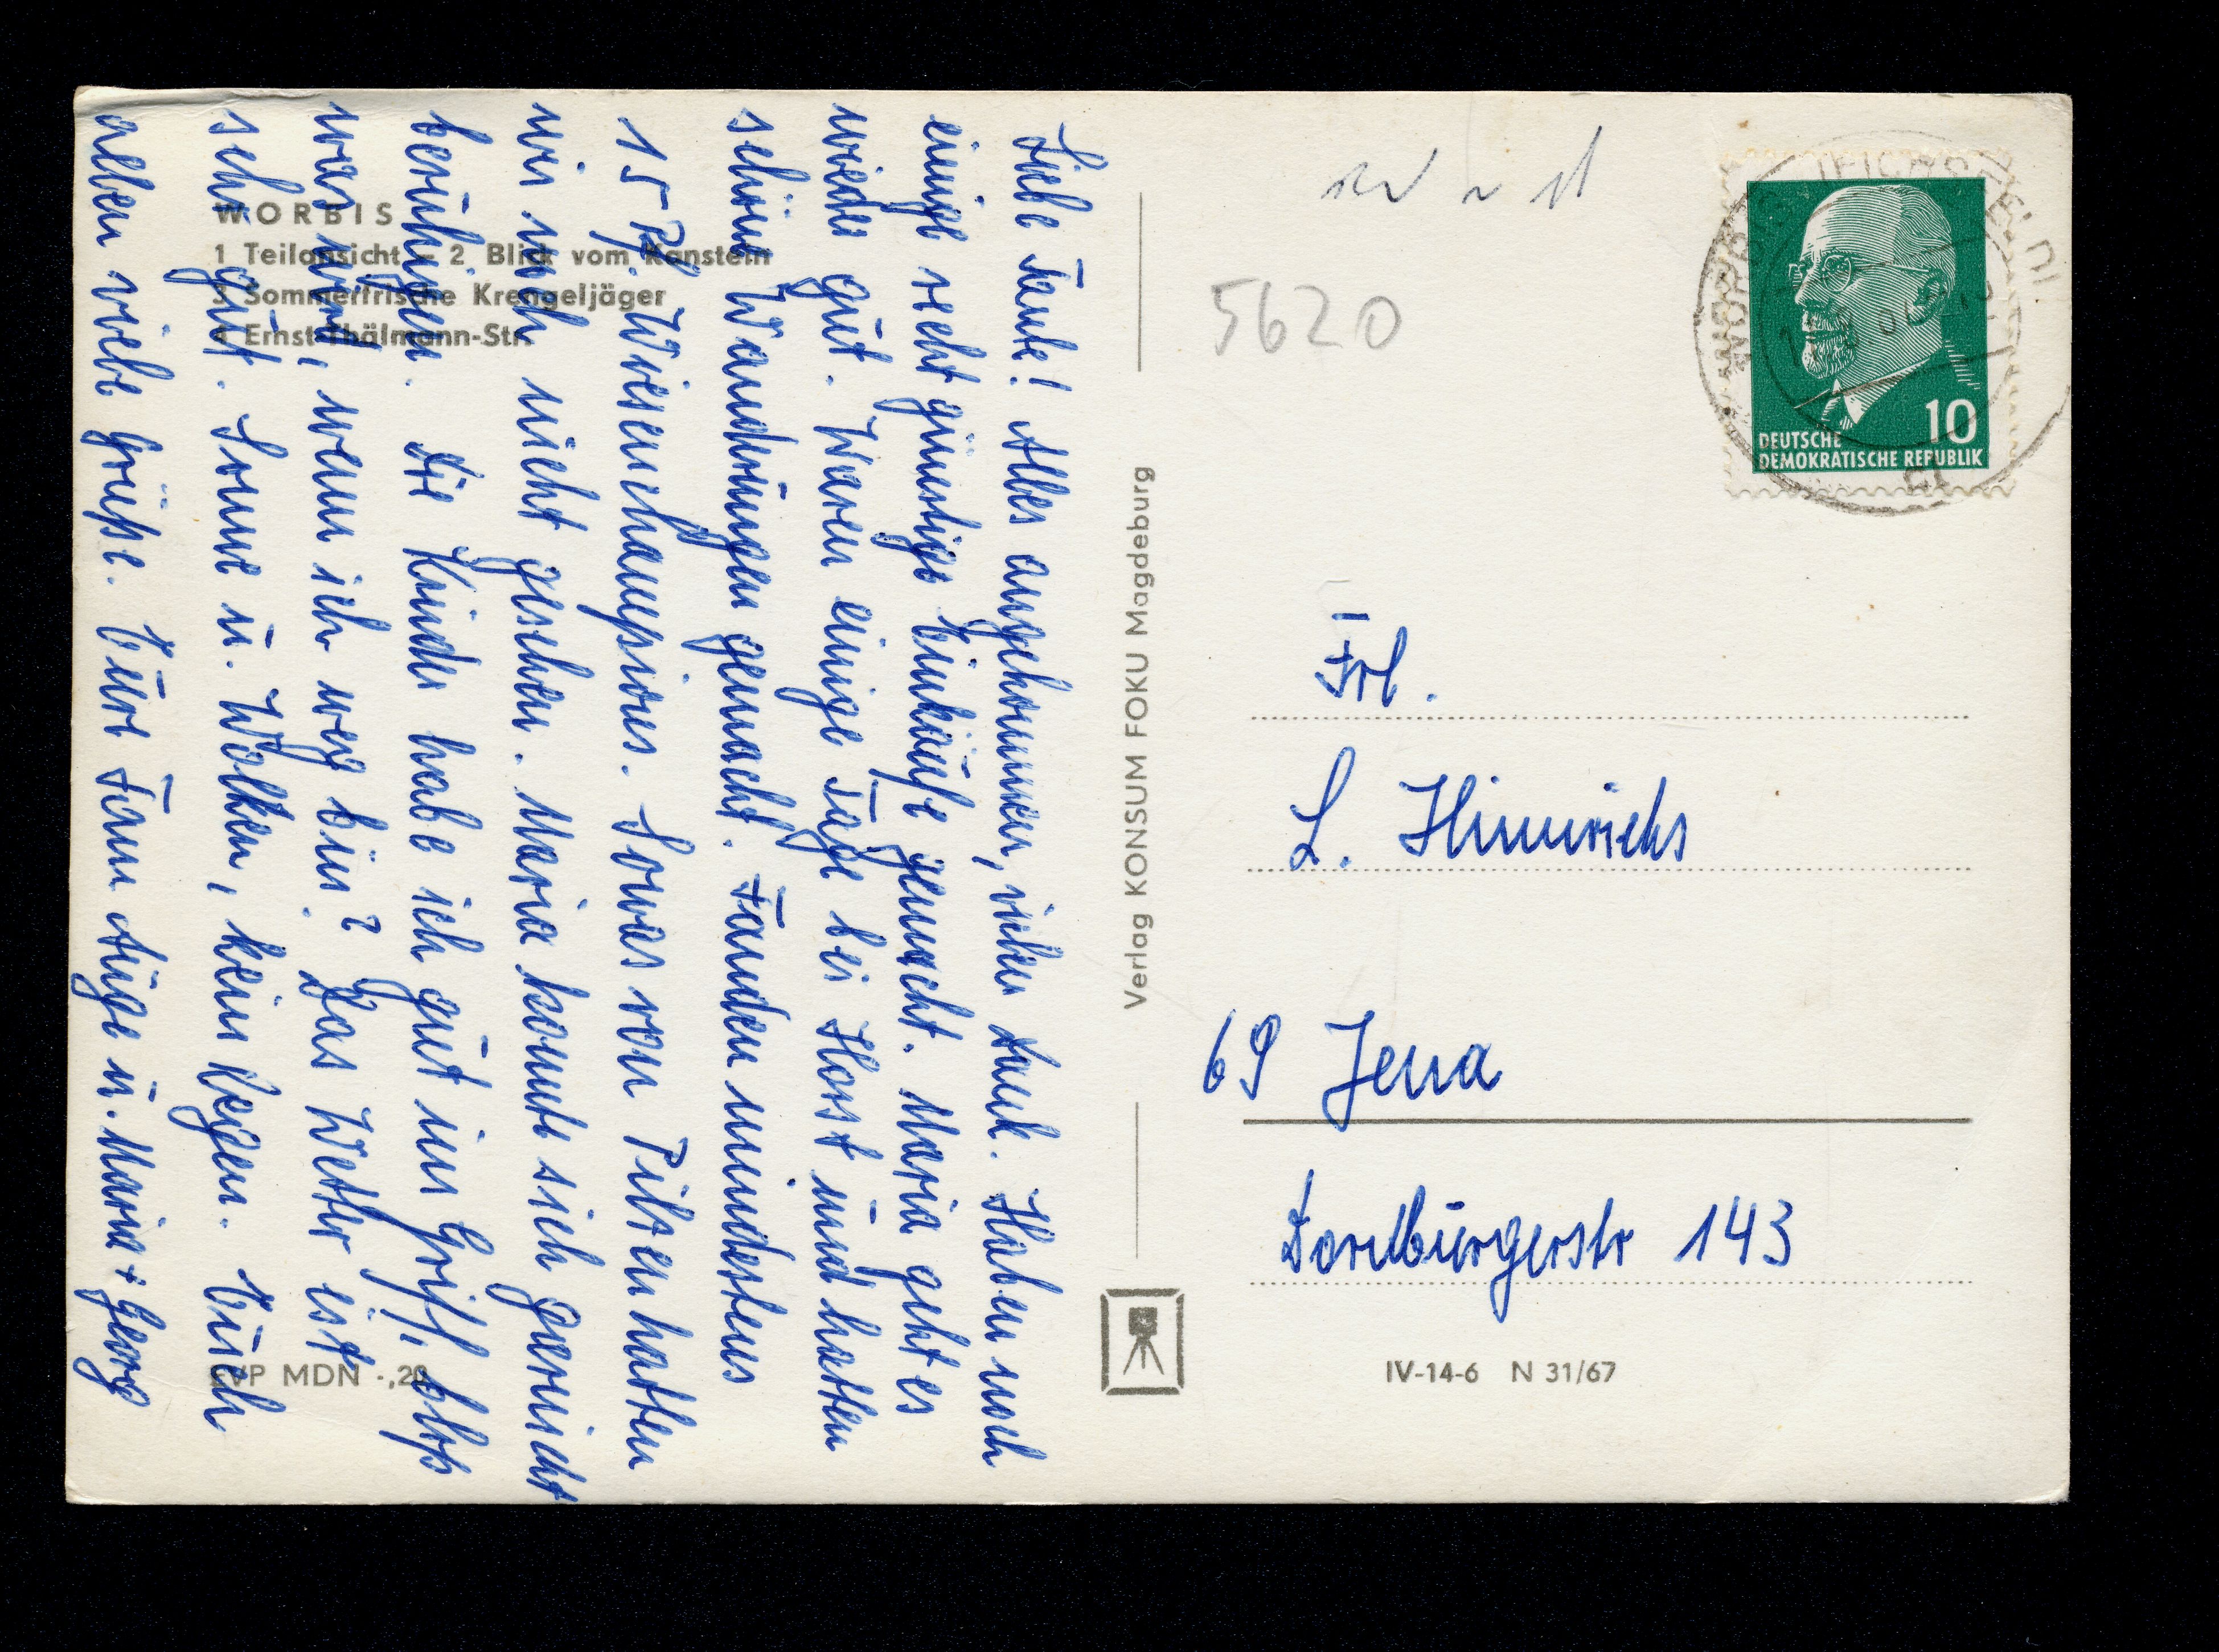 WORBIS
1 Teilansicht – 2 Blick vom Kanstein
3 Sommerfrische Krengeljäger
4 Ernst-Thälmann-Str.
Liebe Tante! Alles angekommen, vielen Dank. Haben noch
einige recht günstige Einkäufe gemacht. Maria geht es
wieder gut. Waren einige Tage bei Horst und hatten
schöne Wandrungen gemacht. Fanden mindestens
15 Pf. Wiesenchampions. Sowas von Pilsen hatten
wir noch nicht gesehen. Maria konnte sich garnicht
beruhigen. Die Kinder habe ich gut im Griff, bloß
was wird, wenn ich weg bin? Das Wetter ist
sehr gut. Sonne u. Wolken, kein Regen. Euch
allen viele Grüße. Eure Fam Auge u. Maria + Georg
EVP MDN -,20
Verlag KONSUM FOKU Magdeburg
5620
10
DEUTSCHE
DEMOKRATISCHE REPUBLIK
Frl.
L. Hinnrichs
69 Jena
Dornburgerstr 143
IV-14-6 N 31/67